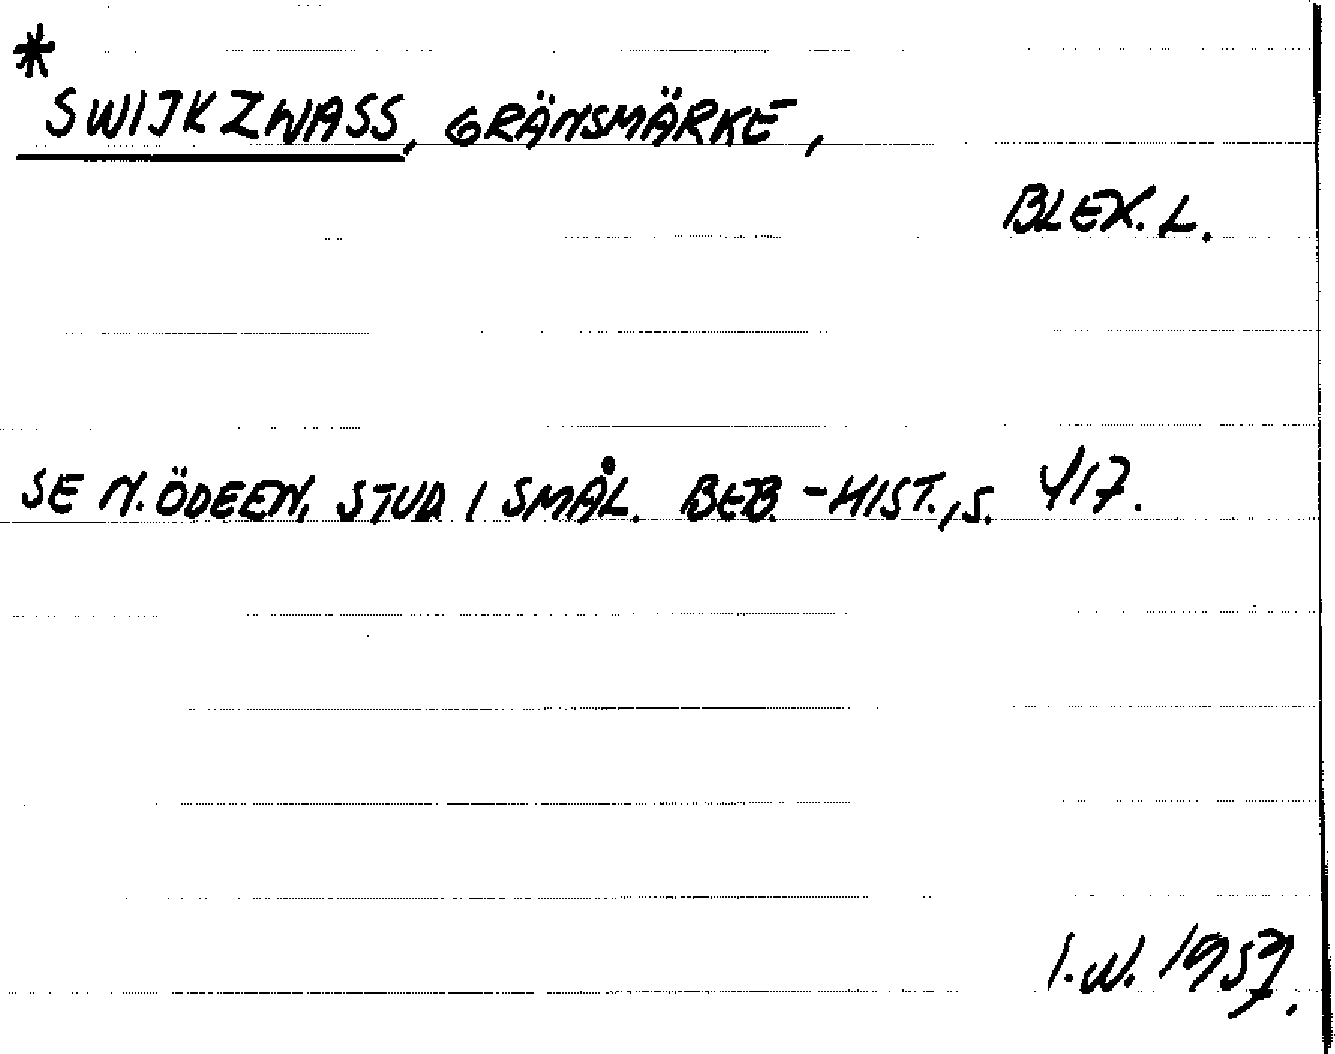 *
SWIJKZWASS, GRÄNSMÄRKE,
BLEK. L.
SE N. ÖDEEN, STUD I SMÅL. BEB. -HIST., S. 417.
I.N. 1957.